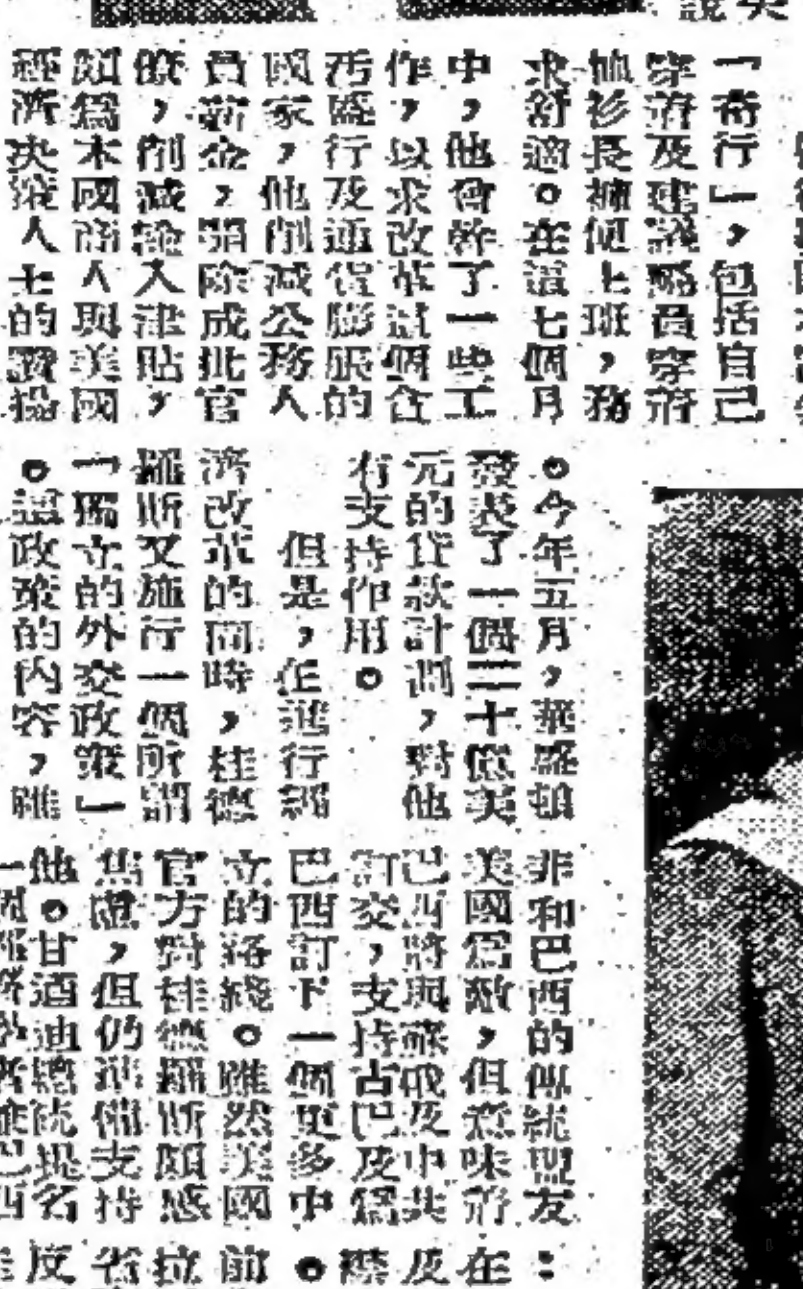 「奇行」，包括自己
穿著及建議職員穿着
恤衫長褲便上班，務
求舒適。在這七個月
中，他曾幹了一些工
作，以求改革這個貪
汚盛行及通貨膨脹的
國家，他削減公務人
員薪金，開除成批官
僚，削減輸入津貼，
頗爲本國商人與美國
經濟決策人士的讚揚
。今年五月，華盛頓
發表了一個二十億美
元的貸款計劃，對他
有支持作用。
但是，在進行經
濟改革的同時，桂德
羅斯又施行一個所謂
「獨立的外交政策」
。這政策的內容，雖
非和巴西的傳統盟友
美國爲敵，但意味着
巴西將與蘇俄及中共
訂交，支持古巴及爲
巴西訂下一個更多中
立的路綫。雖然美國
官方對桂德羅斯頗感
焦慮，但仍準備支持
他。甘迺迪總統提名
：
在
及
。
前
拉
省
反